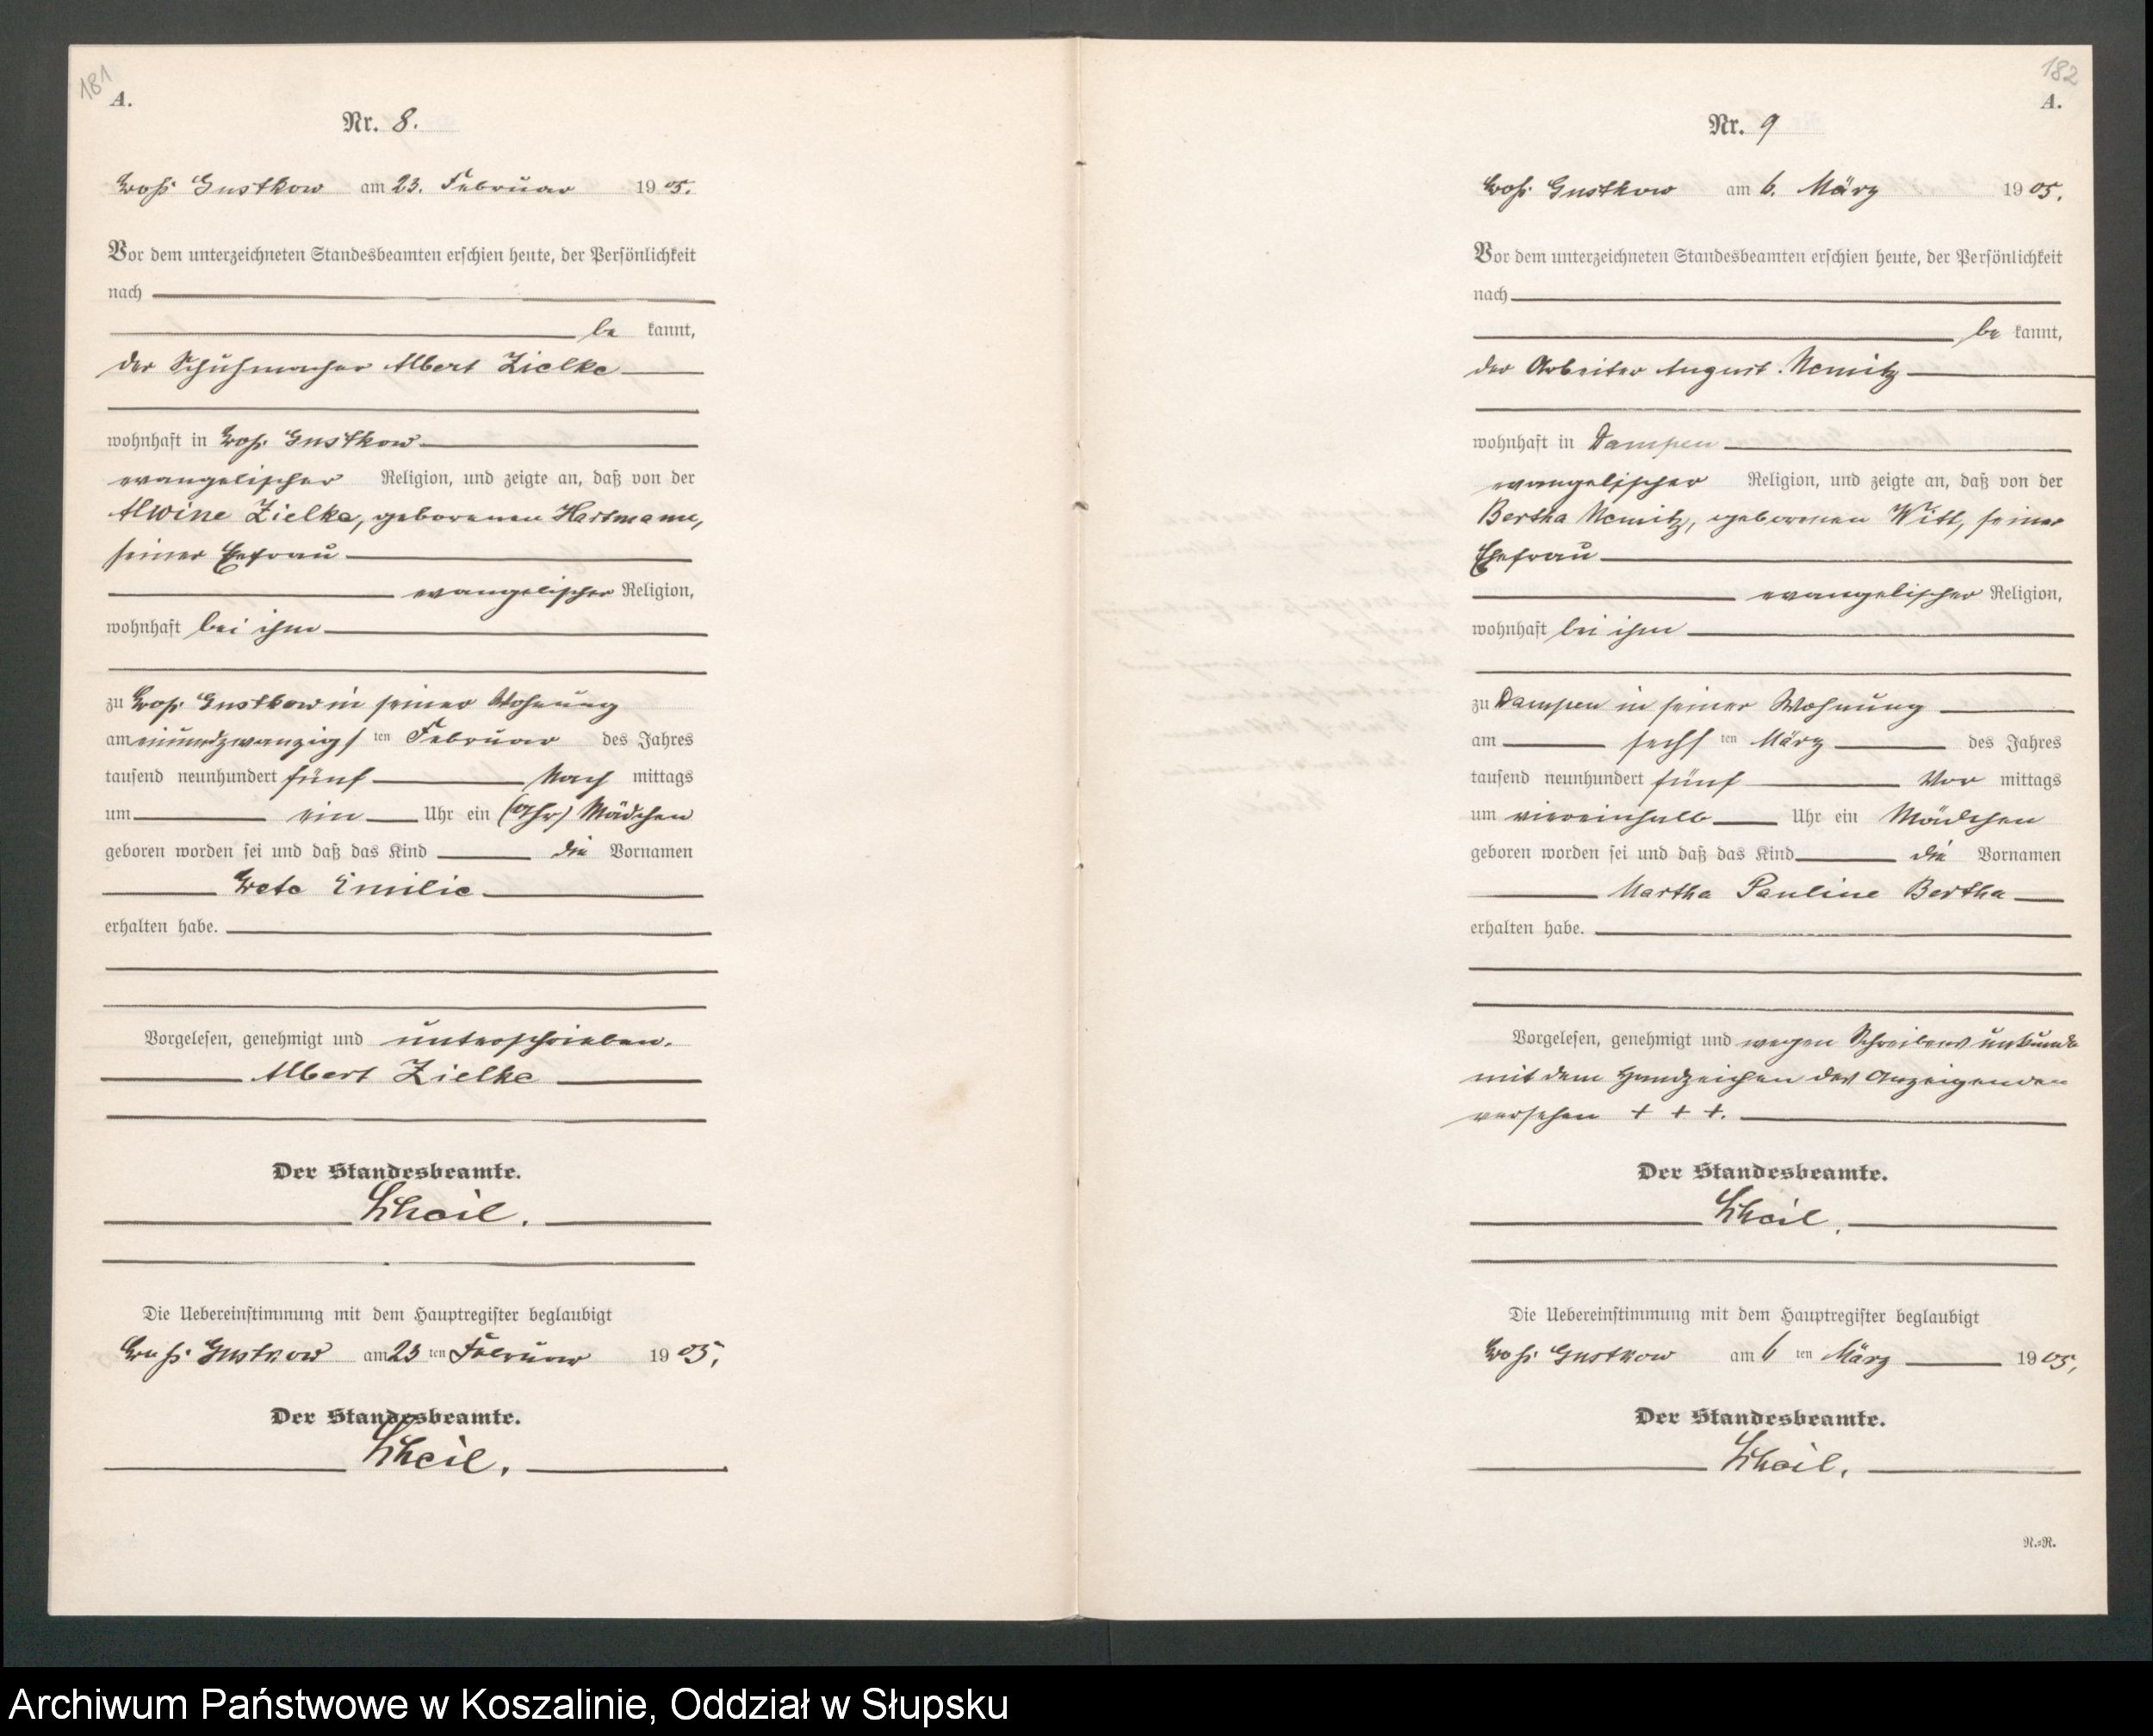 181
A.
Nr. 8.
Groß Gustkow am 23. Februar 1905.
Vor dem unterzeichneten Standesbeamten erschien heute, der Persönlichkeit
nach
be kannt,
der Schuhmacher Albert Zielke
wohnhaft in Groß Gustkow
evangelischer Religion, und zeigte an, daß von der
Alwine Zielke, geborenen Hartmann,
seiner Ehefrau
evangelischer Religion,
wohnhaft bei ihm
zu Groß Gustkow in seiner Wohnung
am einundzwanzigsten Februar des Jahres
tausend neunhundert fünf Nach mittags
um ein Uhr ein (Uhr) Mädchen
geboren worden sei und daß das Kind die Vornamen
Grete Emilie
erhalten habe.
Vorgelesen, genehmigt und unterschrieben.
Albert Zielke
Der Standesbeamte.
Die Uebereinstimmung mit dem Hauptregister beglaubigt
Groß Gustkow am 23 ten Februar 1905.
Der Standesbeamte.
182
A.
Nr. 9
Groß Gustkow am 6. März 1905.
Vor dem unterzeichneten Standesbeamten erschien heute, der Persönlichkeit
nach
be kannt,
der Arbeiter August Nemitz
wohnhaft in Dampen
evangelischer Religion, und zeigte an, daß von der
Bertha Nemitz, geborenen Witt, seiner
Ehefrau
evangelischer Religion,
wohnhaft bei ihm
zu Dampen in seiner Wohnung
am sechsten März des Jahres
tausend neunhundert fünf Vor mittags
um viereinhalb Uhr ein Mädchen
geboren worden sei und daß das Kind die Vornamen
Martha Pauline Bertha
erhalten habe.
Vorgelesen, genehmigt und wegen Schreibens unkunde
mit dem Handzeichen des Anzeigenden
versehen + + +.
Der Standesbeamte.
Die Uebereinstimmung mit dem Hauptregister beglaubigt
Groß Gustkow am 6 ten März 1905.
Der Standesbeamte.
N.=N.
Archiwum Państwowe w Koszalinie, Oddział w Słupsku